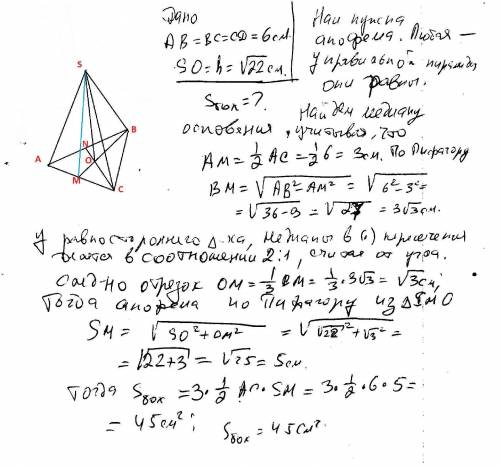 Дано
АВ=ВС=СD=6см
SO=h=√22см.
Sбок=?
Нам нужна
апофема. Любая —
у правильной пирамиды
они равны.
Найдём медиану
основания, учитывая, что
AM=½AC=½6=3см. По Пифагору
BM=√AB²-AM²=√6²-3²=
=√36-9=√27=3√3см.
S
A
B
C
N
O
M
У равностороннего Δ-ка, медианы в (·) пересечения
делятся в соотношении 2:1, считая от угла.
След-но отрезок OM=⅓BM=⅓·3√3=√3см;
Тогда апофема по Пифагору из ΔSMO
SM=√SO²+OM²=√√22²+√3²=
=√22+3=√25=5см.
Тогда Sбок=3·½·AC·SM=3·½·6·5=
=45см²; Sбок=45см².